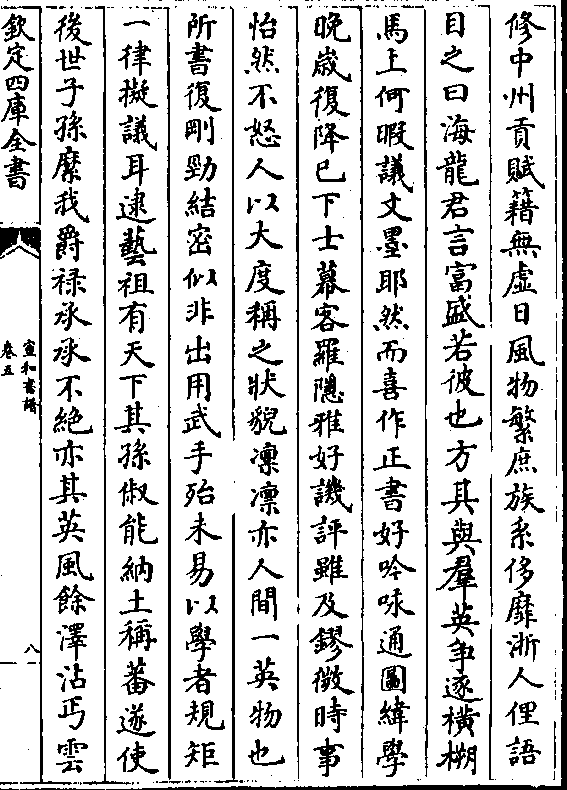 修中州貢賦籍無虚日風物繁庶族系侈靡浙人俚語
目之曰海龍君言富盛若彼也方其與羣英爭逐橫槊
馬上何暇議文墨耶然而喜作正書好吟咏通圖緯學
晚嵗復降已下士幕客羅隱雅好譏評雖及鏐微時事
怡然不怒人以大度稱之狀貌凛凛亦人間一英物也
所書復剛勁結密似非出用武手殆未易以學者規矩
一律擬議耳逮藝祖有天下其孫俶能納土稱蕃遂使
後世子孫縻我爵禄承承不絶亦其英風餘澤沾丐雲
欽定四庫全書
宣和書譜
卷五
八